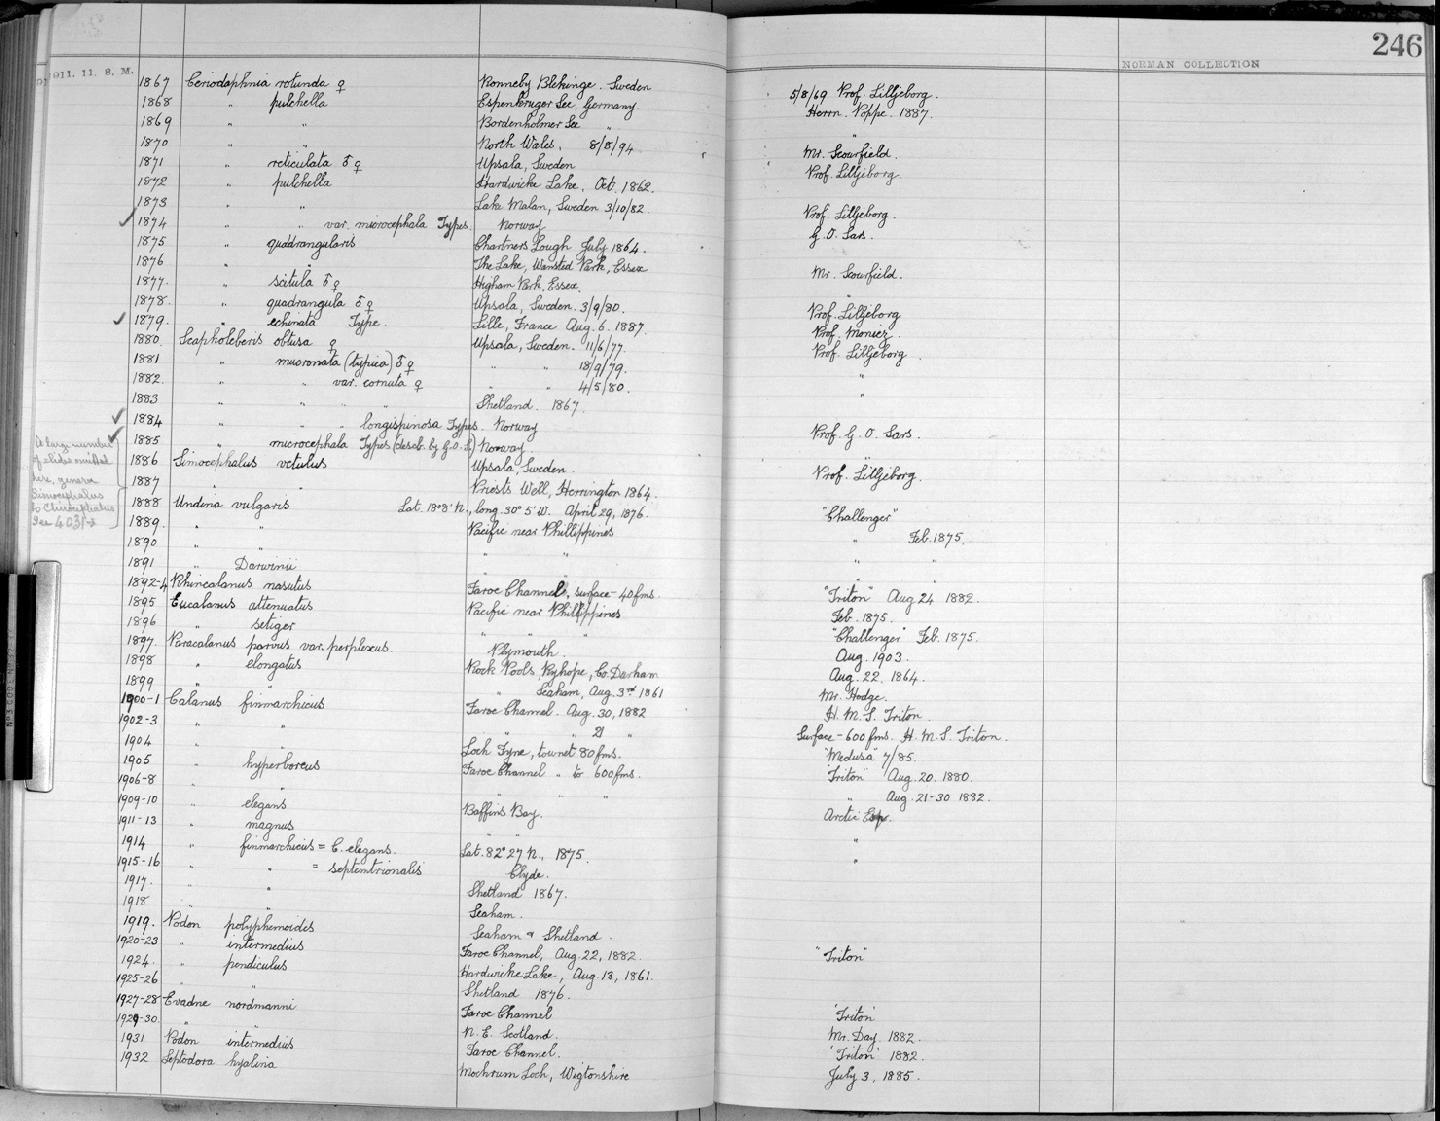 246
1911. 11. 8. M.
NORMAN COLLECTION
1867 Ceriodaphnia rotunda ♀ Ronneby Blekinge. Sweden 5/8/69 Prof. Lilljeborg.
1868 " pulchella Espenkruger See, Germany Herrn. Poppe. 1887.
1869 " " Bordenholmer See " "
1870 " " North Wales, 8/8/94 Mr. Scourfield.
1871 " reticulata ♂♀ Upsala, Sweden Prof. Lilljeborg.
1872 " pulchella Hardwicke Lake, Oct. 1862.
1873 " " Lake Malan, Sweden 3/10/82. Prof. Lilljeborg.
1874 " " var. microcephala Types. Norway G. O. Sars.
1875 " quadrangularis Chartners Lough July 1864.
1876 " " The Lake, Wansted Park, Essex Mr. Scourfield.
1877. " scitula ♂♀ Higham Park, Essex. "
1878. " quadrangula ♂♀ Upsala, Sweden. 3/9/80. Prof. Lilljeborg
1879. " echinata Type. Lille, France Aug. 6. 1887. Prof. Moniez.
1880. Scapholeberis obtusa ♀ Upsala, Sweden. 11/6/77. Prof. Lilljeborg
1881 " mucronata (typica) ♂♀ " " 18/9/79. "
1882. " " var. cornuta ♀ " " 4/5/80. "
1883 " " " " Shetland. 1867.
1884 " " " longispinosa Types. Norway Prof. G. O. Sars.
1885 " microcephala Types (descb. by G.O.S.) Norway "
1886 Simocephalus vetulus Upsala, Sweden. Prof. Lilljeborg.
1887 " " Priests Well, Herrington 1864.
A large number
of slides omitted
here, genera
Simocephalus
to Chirocephalus
See 4031-2
1888 Undina vulgaris Lat. 13°8' N., long. 30° 5' W. April 29, 1876. "Challenger"
1889. " " Pacific near Phillippines " Feb. 1875.
1890 " " " " " "
1891 " Darwinii " " "
1892-4 Rhincalanus nasutus Faroe Channel, surface-40 fms. "Triton" Aug 24 1882.
1895 Eucalanus attenuatus Pacific near Phillippines Feb. 1875.
1896 " setiger " " " "Challenger" Feb. 1875.
1897. Paracalanus parvus var. perplexus. Plymouth. Aug. 1903.
1898 " elongatus Rock Pools Ryhope, Co. Durham Aug. 22. 1864.
1899 " " " Seaham, Aug. 3rd 1861 Mr. Hodge.
1900-1 Calanus finmarchicus Faroe Channel. Aug. 30, 1882 H. M. S. Triton.
1902-3 " " " " 21 " Surface-600 fms. H. M. S. Triton.
1904 " " Loch Fyne, townet 80 fms. "Medusa" 7/85.
1905 " hyperboreus Faroe Channel " to 600 fms. "Triton" Aug. 20. 1880.
1906-8 " " " " " " Aug. 21-30 1882.
1909-10 " elegans Baffins Bay. Arctic Exp.
1911-13 " magnus " " "
1914 " finmarchicus = C. elegans. Lat. 82° 27 N., 1875. "
1915-16 " " = septentrionalis Clyde.
1917. " " Shetland 1867.
1918 " " Seaham.
1919. Podon polyphemoides Seaham & Shetland.
1920-23 " intermedius Faroe Channel, Aug. 22, 1882. "Triton"
1924. " pendiculus Hardwicke Lake, Aug. 13, 1861.
1925-26 " " Shetland 1876.
1927-28 Evadne nordmanni Faroe Channel "Triton"
1929-30. " " N. E. Scotland. Mr. Day. 1882.
1931 Podon intermedius Faroe Channel. "Triton" 1882.
1932 Leptodora hyalina Mochrum Loch, Wigtonshire July 3, 1885.